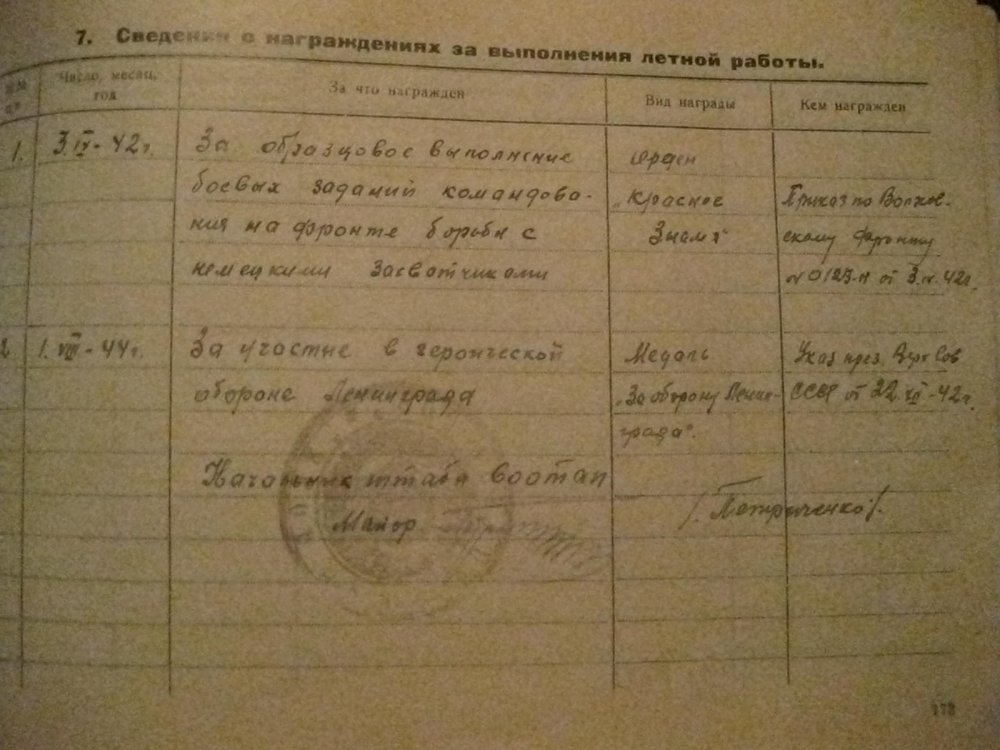 7. Сведения о награждениях за выполнения летной работы.
Число, месяц, год
За что награжден
Вид награды
Кем награжден
1. 3.IV-42г. За образцовое выполнение орден
боевых заданий командова- „Красное Приказ по Волхов-
ния на фронте борьбы с Знамя" скому фронту
немецкими захватчиками от 3.IV.42г.
2 1.VIII-44г. За участие в героической Медаль Указ през. Верх Сов
обороне Ленинграда „За оборону Ленин- СССР от 22.XII-42г.
града".
Начальник штаба
Майор /Петриченко/.
173